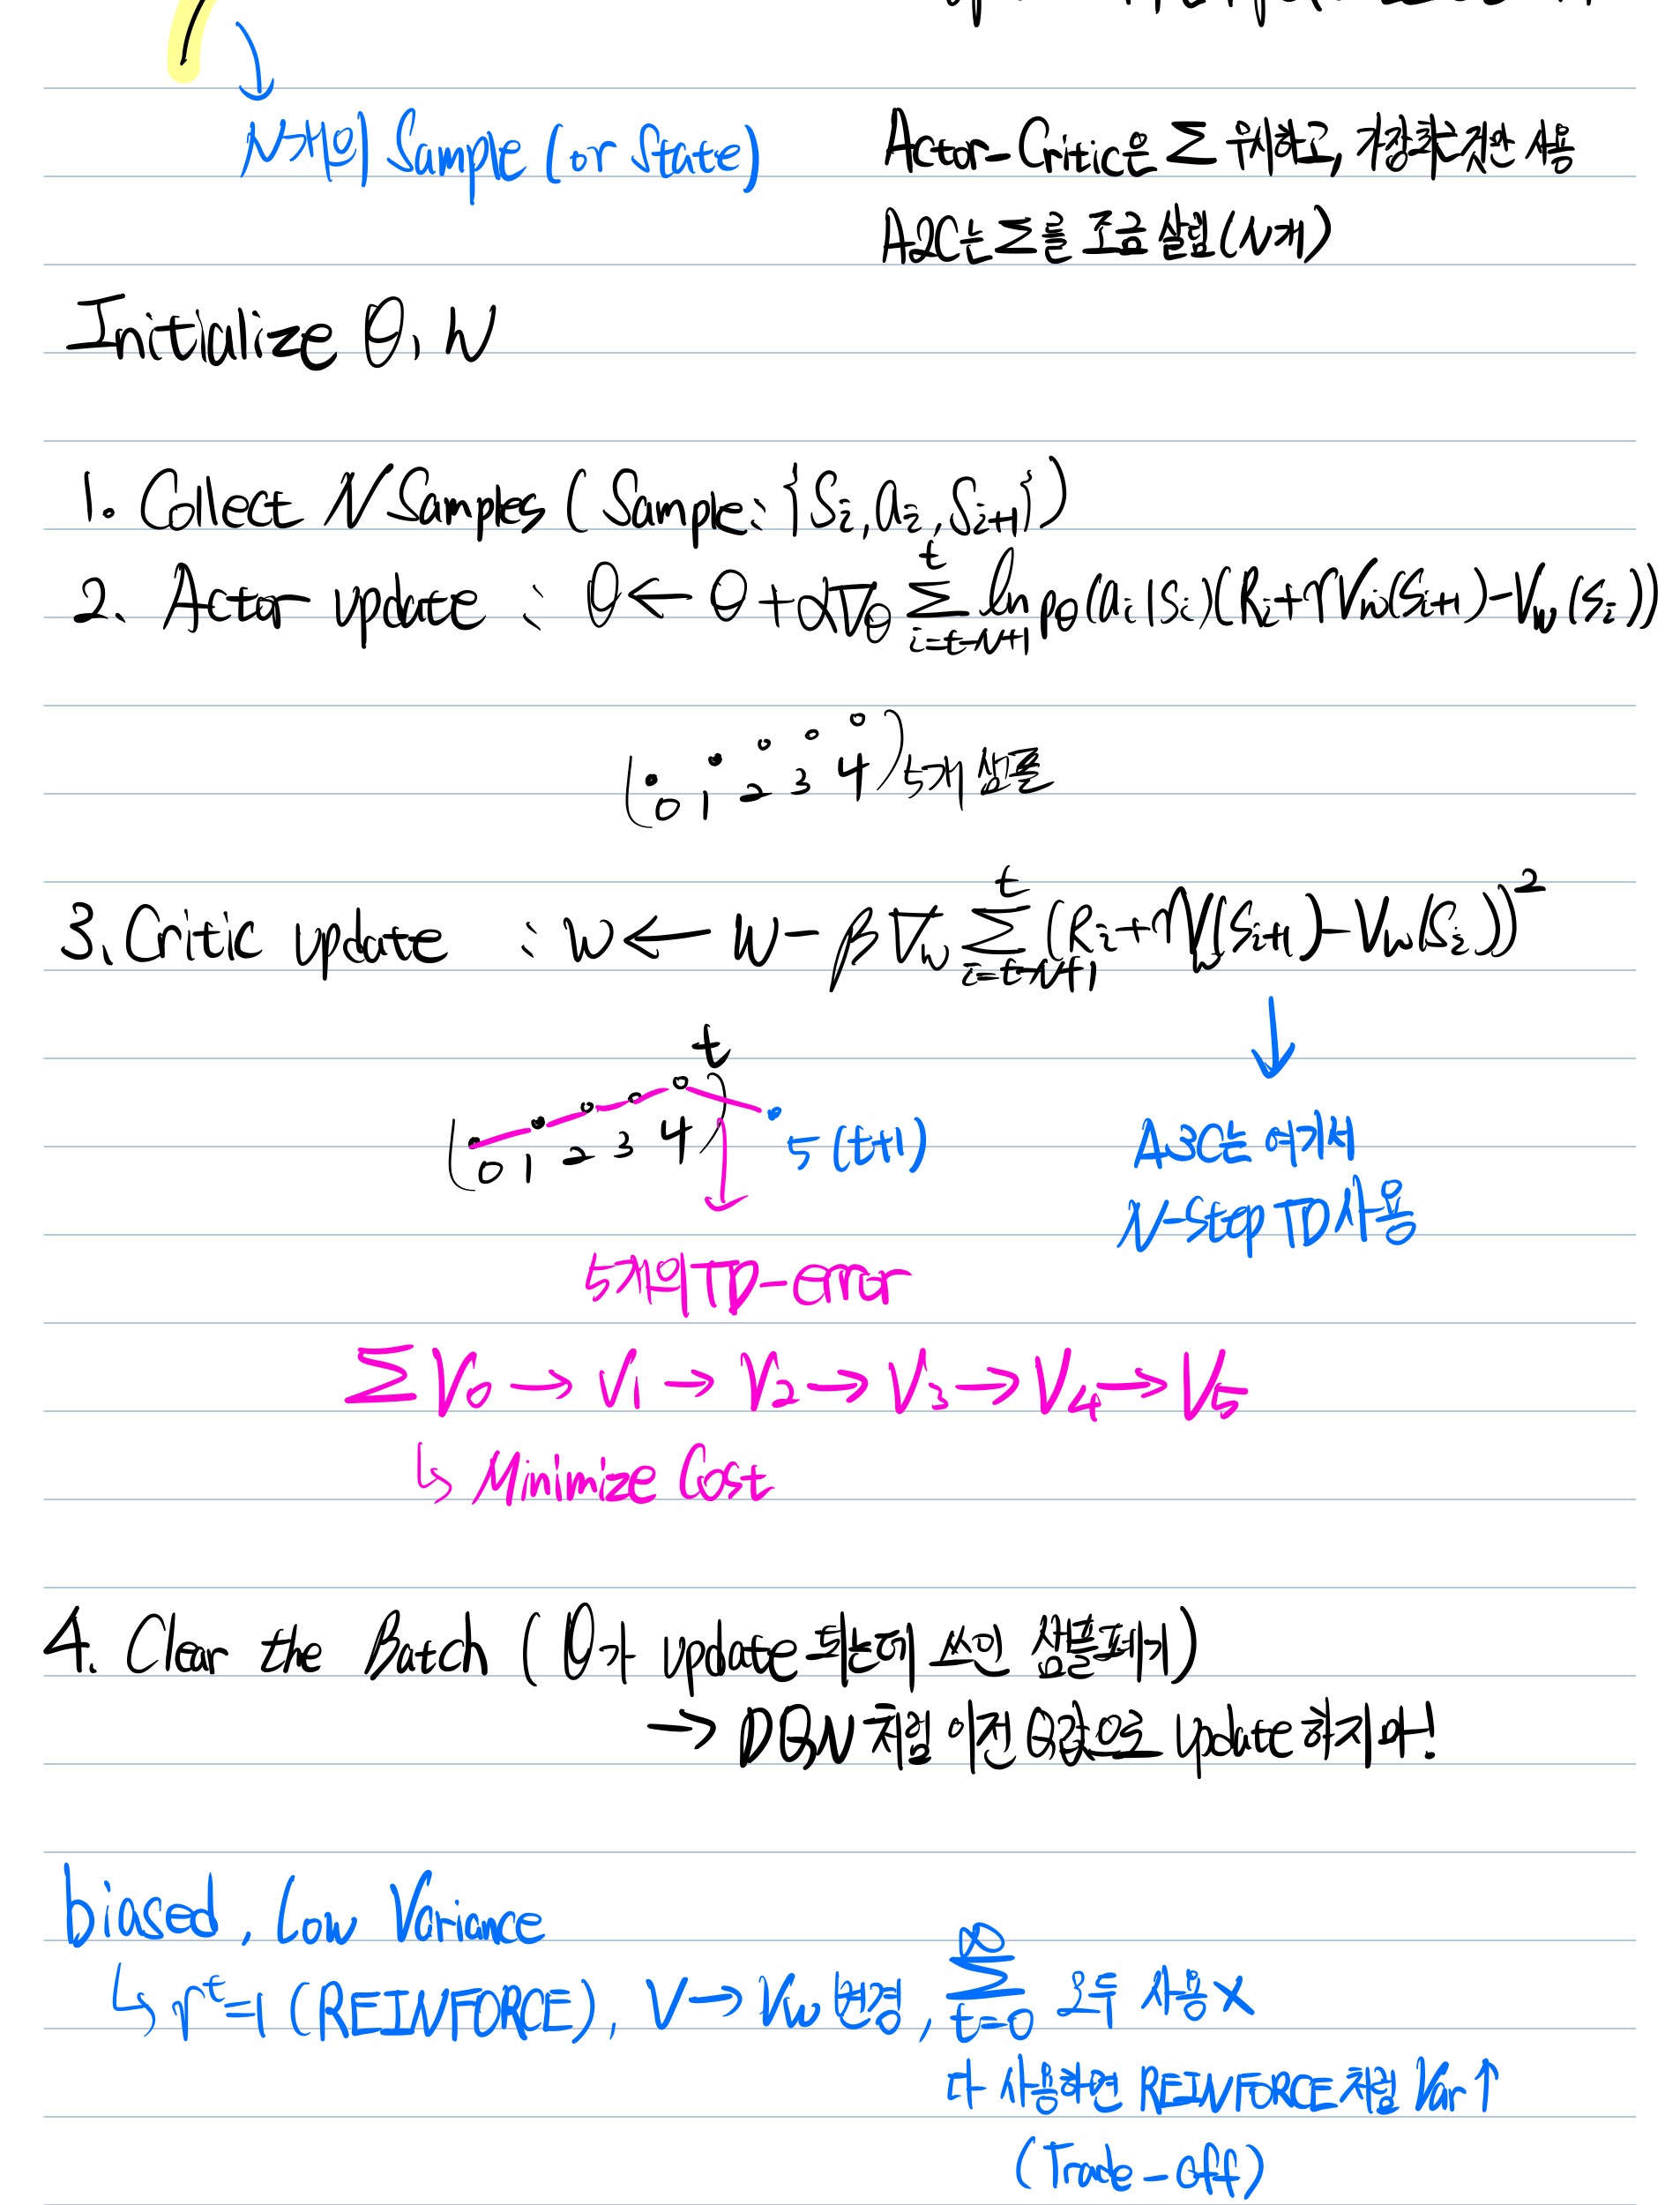 N개의 Sample (or State)
Actor-Critic은 Σ 무시하고, 가장최근것만 사용
A2C는 Σ를 조금 살림 (N개)
Initialize θ, w
1. Collect N Samples (Sample: {Si, ai, Si+1})
2. Actor update : θ ← θ + α∇θ Σ_{i=t-N+1}^{t} ln pθ(ai|si)(Ri + γVw(Si+1) - Vw(si))
(0 1 2 3 4) 5개 샘플
3. Critic update : w ← w - β∇w Σ_{i=t-N+1}^{t} (Ri + γVw(Si+1) - Vw(Si))²
t
(0 1 2 3 4) 5 (t+1)
A3C는 여기서
N-Step TD 사용
5개의 TD-error
Σ V0 → V1 → V2 → V3 → V4 → V5
↳ Minimize Cost
4. Clear the Batch (θ가 update 되는데 쓰인 샘플 폐기)
→ DQN처럼 이전 Q값으로 update 하지마!
biased, Low Variance
↳ γ^t=1 (REINFORCE), V → Vw 변경, Σ_{t=0}^{∞} 모두 사용 X
다 사용하면 REINFORCE처럼 Var↑
(Trade-off)